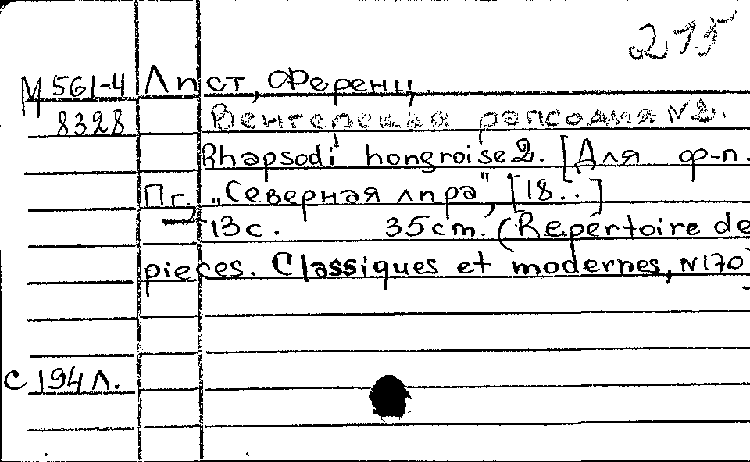 215
М 561-4 Лист, Ференц
8328 Венгерская рапсодия №2.
Rhapsodi hongroise 2. [Для ф-п.
Пг. „Северная лира", [18..]
13с. 35cm. (Repertoire de
pieces. Classiques et modernes, N170)
с 194 л.